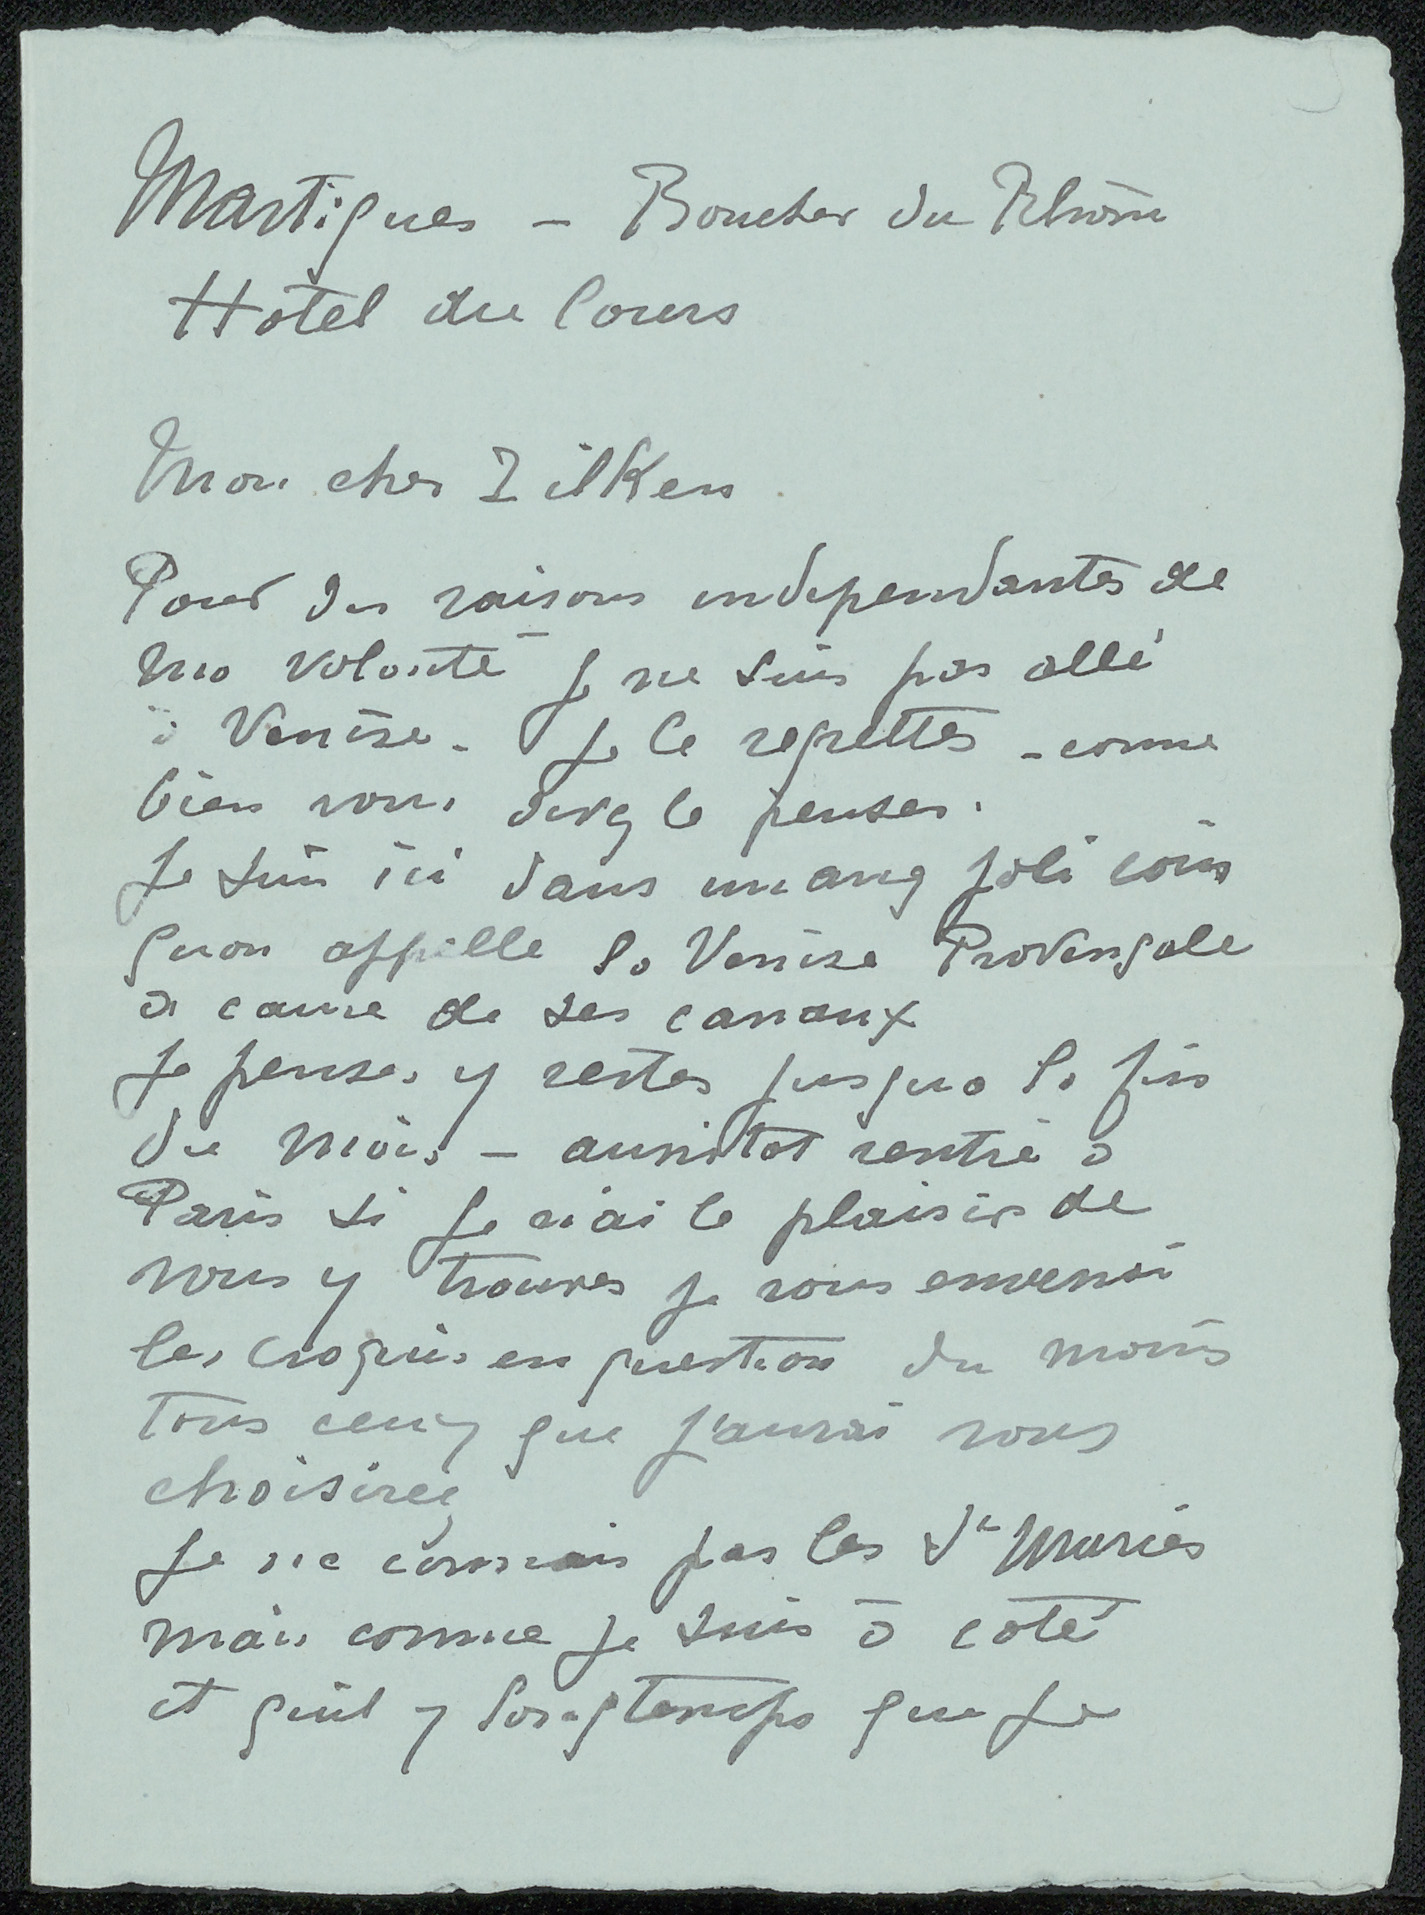 Martigues – Bouches du Rhône
Hôtel du Cours
Mon cher Zilken
Pour des raisons independantes de
ma volonté je ne suis pas allé
à Venise. Je le regrette – comme
bien vous devez le penser.
Je suis ici dans un assez joli coin
quon appelle la Venise Provençale
à cause de ses canaux
Je pense y rester jusqua la fin
du mois – aussitot rentré à
Paris si je n'ai le plaisir de
vous y trouver je vous enverrai
les croquis en question du moins
tous ceux que j'aurai vous
choisirez
Je ne connais pas les Stes Maries
mais comme je suis à coté
et quil y longtemps que je